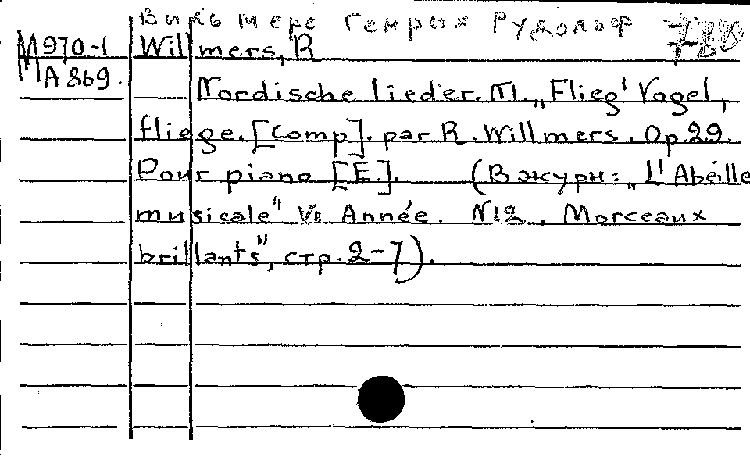 Вильмерс Генрих Рудольф 788
М970-1 Willmers, R
МА869.
Nordische lieder. M. „Flieg' Vogel,
fliege. [Comp]. par R. Willmers. Op. 29.
Pour piano [E]. (В журн: „L'Abéille
musicale" Ve Année. N12. Morceaux
brillants", стр. 2-7).